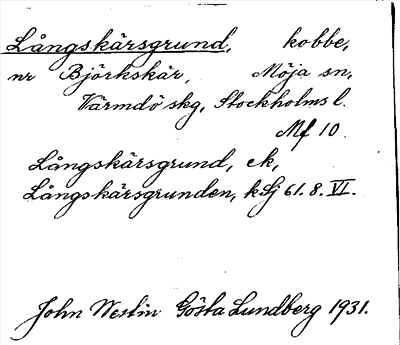 Långskärsgrund, kobbe,
nr Björkskär, Möja sn,
Värmdö skg, Stockholms l.
Mf 10.
Långskärsgrund, ek,
Långskärsgrunden, kSj 61.8.VI.
John Westin Gösta Lundberg 1931.